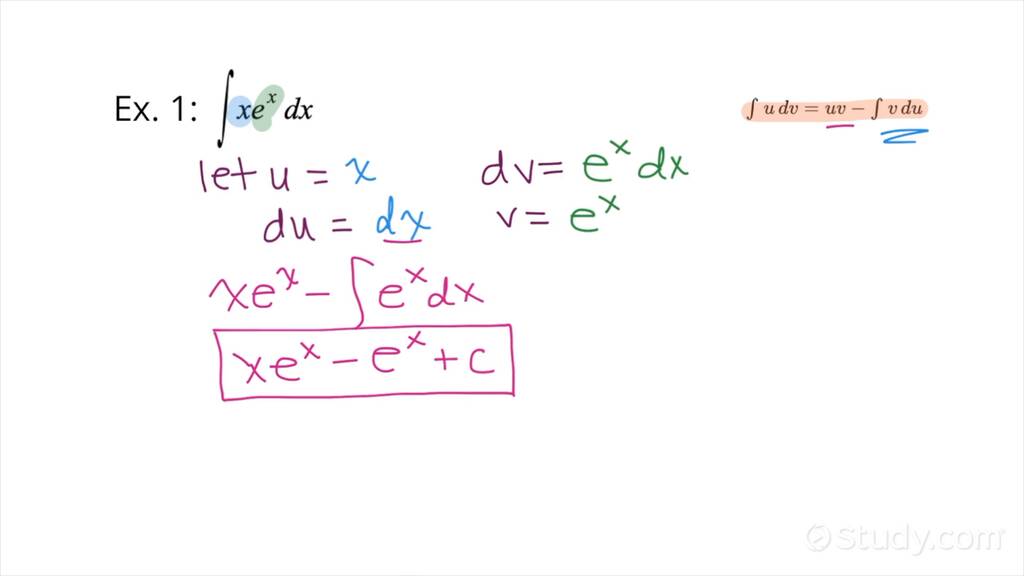 Ex. 1: ∫ xeˣ dx
∫ u dv = uv − ∫ v du
let u = x
dv = eˣ dx
du = dx
v = eˣ
xeˣ − ∫ eˣ dx
xeˣ − eˣ + c
Study.com